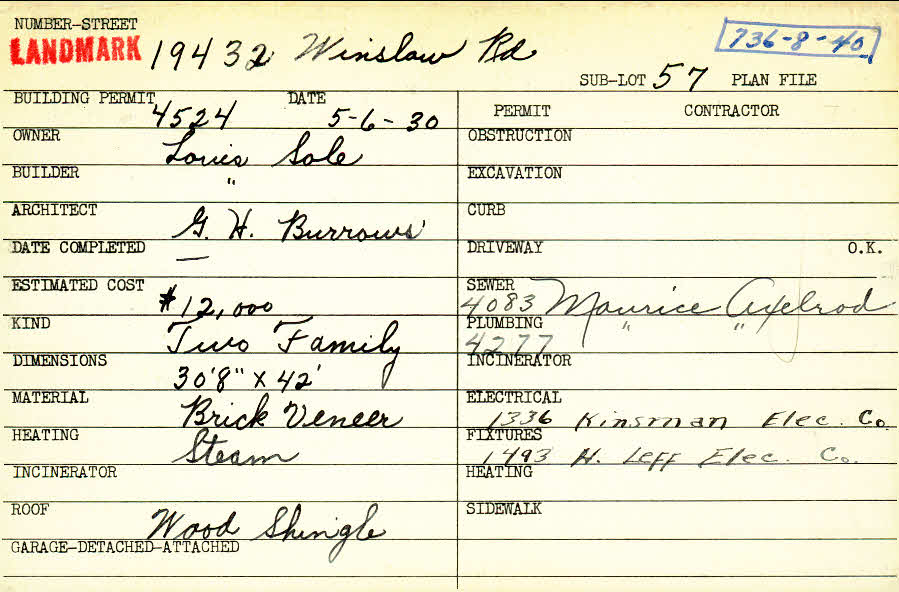 NUMBER-STREET
LANDMARK 19432 Winslow Rd
736-8-40
SUB-LOT 57 PLAN FILE
BUILDING PERMIT 4524 DATE 5-6-30
OWNER Louis Sole
BUILDER "
ARCHITECT G. H. Burrows
DATE COMPLETED —
ESTIMATED COST $12,000
KIND Two Family
DIMENSIONS 30'8" x 42'
MATERIAL Brick Veneer
HEATING Steam
INCINERATOR
ROOF Wood Shingle
GARAGE-DETACHED-ATTACHED
PERMIT CONTRACTOR
OBSTRUCTION
EXCAVATION
CURB
DRIVEWAY O.K.
SEWER 4083 Maurice Axelrod
PLUMBING 4277 " "
INCINERATOR
ELECTRICAL 1336 Kinsman Elec. Co.
FIXTURES 1493 H. Leff Elec. Co.
HEATING
SIDEWALK